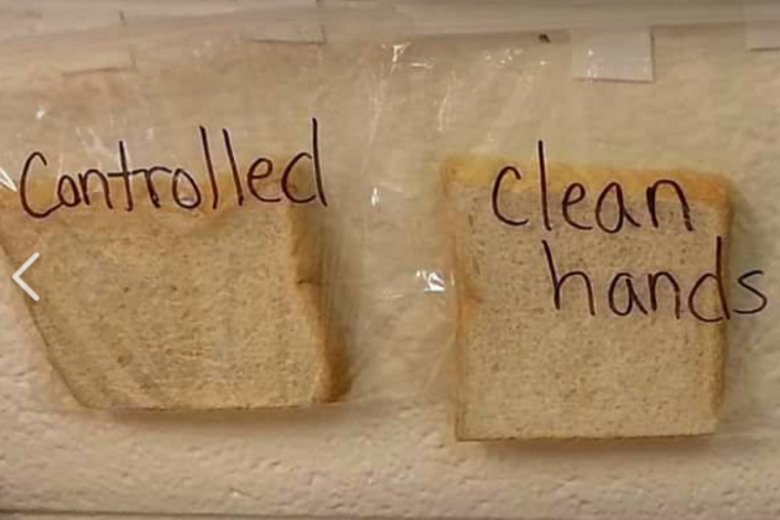 Controlled
clean
hands